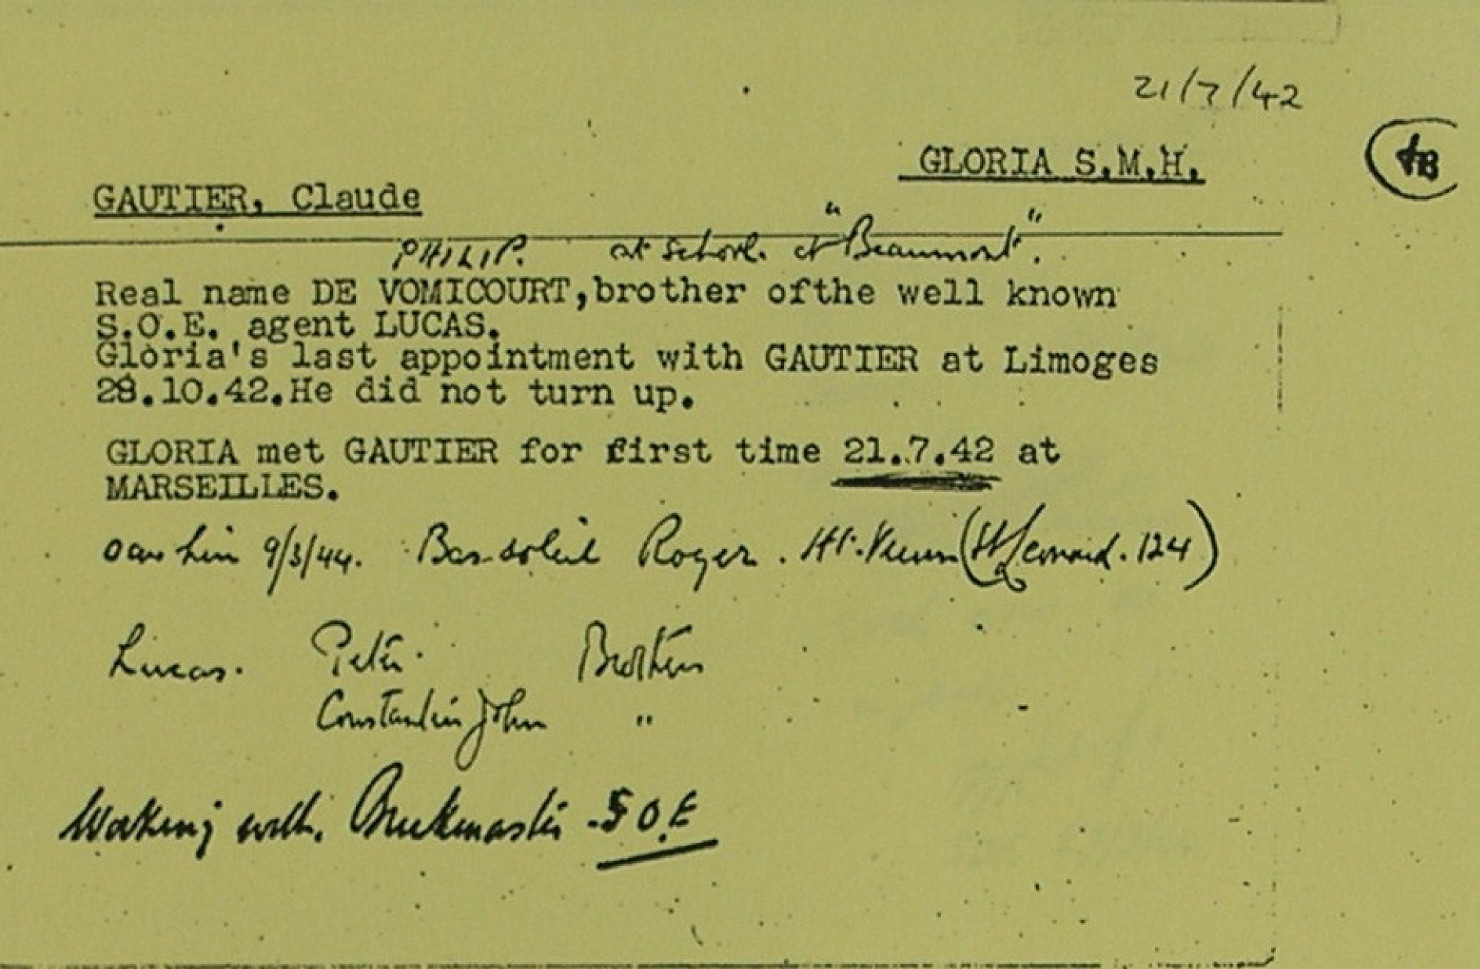 21/7/42
GLORIA S.M.H.
GAUTIER, Claude
PHILIP. at school at "Beaumont".
Real name DE VOMICOURT,brother ofthe well known
S.O.E. agent LUCAS.
Gloria's last appointment with GAUTIER at Limoges
28.10.42.He did not turn up.
GLORIA met GAUTIER for first time 21.7.42 at
MARSEILLES.
saw him 9/3/44. Bas-soleil Roger. Ht.-Vienne (St Leonard. 124)
Lucas. Peter. Brothers
Constantin John "
Working with. Buckmaster - S O.E